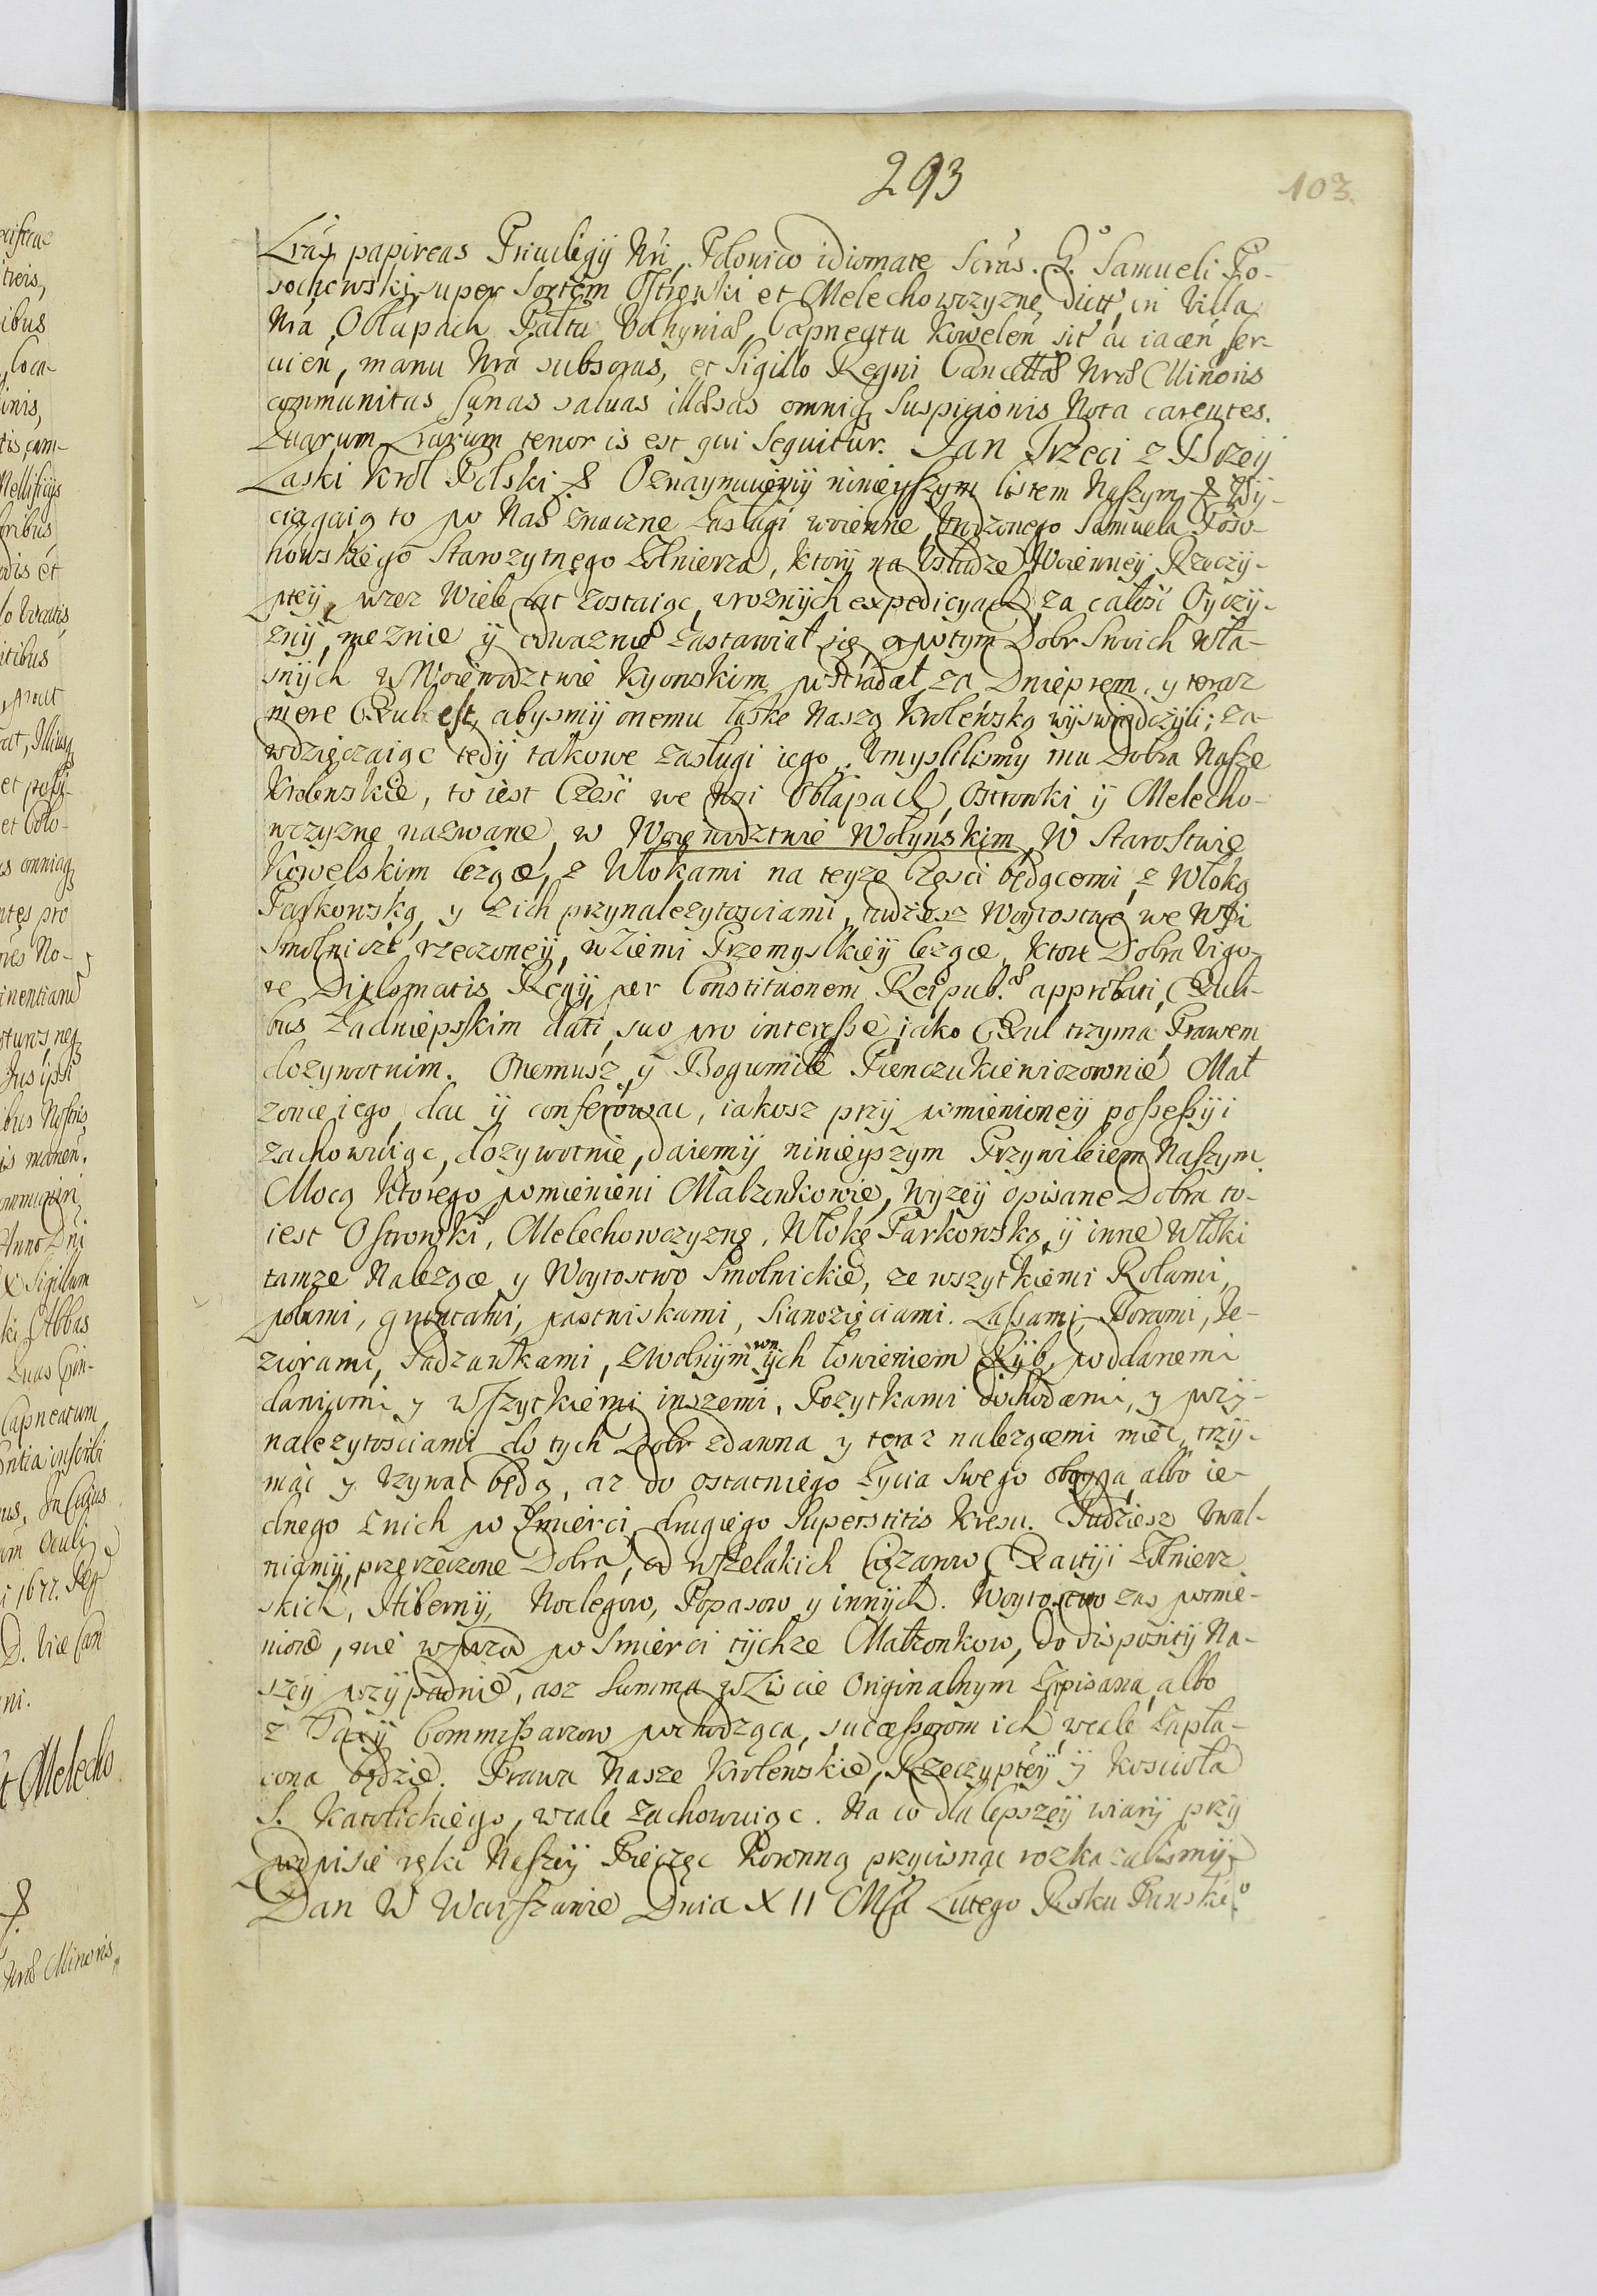 293
103.
Lrás papireas Priuilegij Nri, Polonico idiomate Scras. G.° Samueli Po-
sochowski super Sortem Ostrowki et Melechowczyznę dict, in Villa
Nra Obłapach Palttu Volhyniae, Capneatu Kowelen sit ac iacen, ser-
uien, manu Nra subscras, et Sigillo Regni Cancellae Nrae Minoris
communitas Sanas saluas illaesas omniq Suspicionis Nota carentes.
Quarum Lrarum tenor is est qui Sequitur. Jan Trzeci z Bozeij
Łaski Krol Polski & Oznaymuiemy ninieyszym listem Naszym & Wy-
ciągaią to po Nas znaczne Zasługi woienne, Urodzonego Samuela Poso-
howskiego Starozytnego Zołnierza, ktorij na Usłudze Woienneÿ Rzeczÿ-
pteÿ, przez Wiele Lat zostaiąc, w roznÿch expedicyach, za całość Oyczÿ-
znÿ, męznie ÿ odwaznie zastawiał się, a potym Dobr Swoich wła-
snÿch w Woiewodztwie Kyonskim postradał za Dnieprem, y teraz
mere Exul est, abysmÿ onemu łaskę Naszą Krolewską wÿswiadczÿli; za-
wdzięczaiąc tedÿ takowe zasługi iego. Umyslilismy mu Dobra Nasze
Krolewskie, to iest Część we Wsi Obłapach, Ostrowki ÿ Melecho-
wczyznę nazwane, w Woiewodztwie Wołyńskim, W Starostwie
Kowelskim lezące, z Włokami na teyze Częsci będącemi, z Włoką
Parkowską, y z ich przynalezytosciami, tudziesz Woytostwo we Wsi
Smolnicze rzeczoneÿ, w Ziemi Przemyskieÿ lezące, ktore Dobra Vigo-
re Diplomatis Regÿ, per Constitutionem Reipub.ae approbati, Exuli-
bus Zadnieprskim dati, suo pro interesse, iako Exul trzyma Prawem
dozywotnim. Onemusz, ÿ Bogumile Pienczukiewiczownie Mał
zonce iego, dac ÿ conferowac, iakosz przÿ pomienioneÿ possessÿi
zachowuiąc, dozywotnie, daiemÿ ninieyszym Przywileiem Naszym.
Mocą ktorego pomienieni Małzonkowie, wyzeÿ opisane Dobra to-
iest Ostrowki, Melechowczyznę, Włokę Parkowską, ÿ inne Włoki
tamze Nalezące y Woytostwo Smolnickie, ze wszytkiemi Rolami,
polami, gruntami, pastwiskami, Sianozęciami. Lassami, Borami, Je-
ziorami, Sadzawkami, z wolnÿm wn ÿch łowieniem Rÿb, poddanemi
daniami y Wszytkiemi inszemi, Pozytkami dochodami, y przÿ-
nalezytosciami do tych Dobr zdawna y teraz nalezącemi mieć, trzÿ-
mać y Uzywać będą, az do ostatniego Zycia Swego oboyga, albo ie-
dnego z nich po Smierci, drugiego Superstitis kresu. Tudziesz Uwal-
niamÿ, przerzeczone Dobra, od wszelakich Ciązarow Exactiji Zołnierz
skich, Hibernÿ, Noclegow, Popasow y innÿch. Woytostwo zas pomie-
nione, nie wprzod po Smierci tÿchze Małzonkow, do dispositiÿ Na-
szeÿ przÿpadnie, asz Summa w Liscie Originalnym Zapisana, albo
z Taxÿ Commissarzow pochodząca, successorom ich, wcale Zapła-
cona będzie. Prawa Nasze Krolewskie, Rzeczypteÿ, ÿ Koscioła
S. Katolickiego, wcale zachowuiąc. Na co dla lepszeÿ wiarÿ przÿ
podpisie ręki Naszeÿ Pieczęc Koronną przycisnąc rozkazalismÿ.
Dan W Warszawie Dnia XII Msca Lutego Roku Panskie°